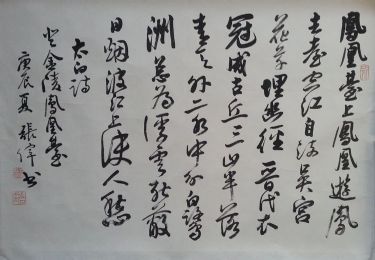 鳳凰臺上鳳凰遊鳳
去臺空江自流吳宮
花草埋幽徑晉代衣
冠成古丘三山半落
青天外二水中分白鷺
洲總為浮雲能蔽
日烟波江上使人愁
太白詩
登金陵鳳凰臺
庚辰夏 張 書